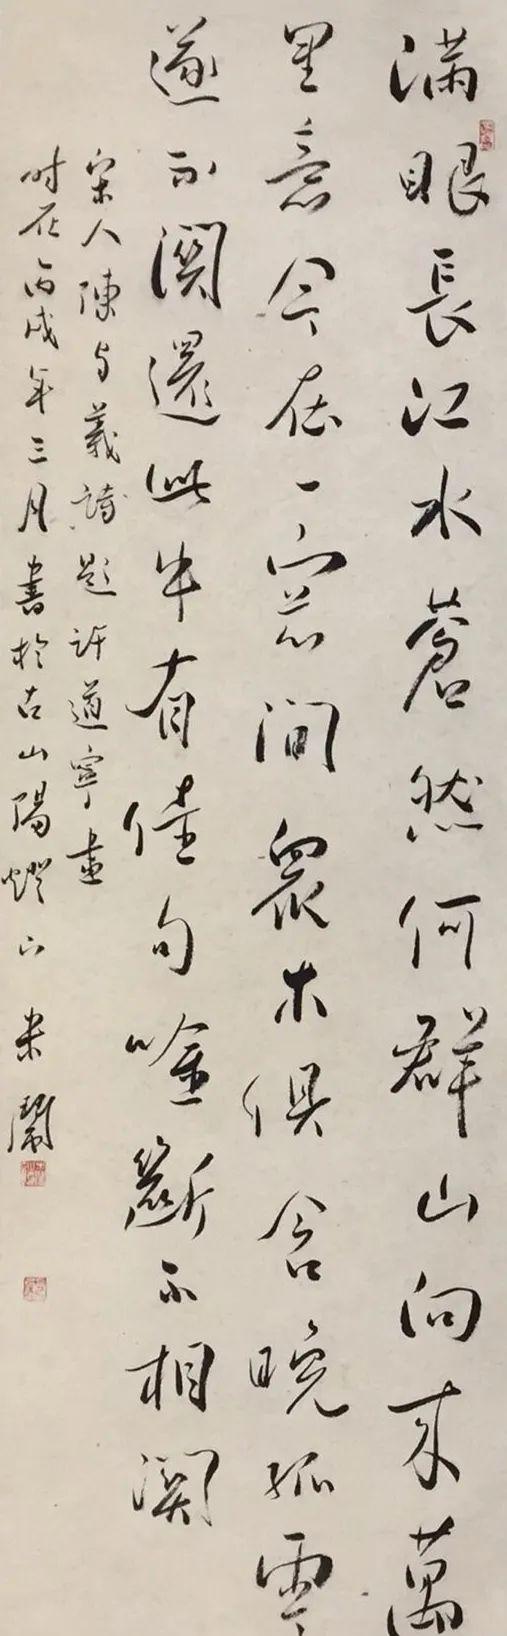 滿眼長江水蒼然何群山向來萬
里意今在一窓間眾木俱含晚孤雲
遂不關還此中有佳句唫斷不相關
宋人陳与義詩題許道寧畫
时在丙戌年三月書於古山陽燈下 米鬧